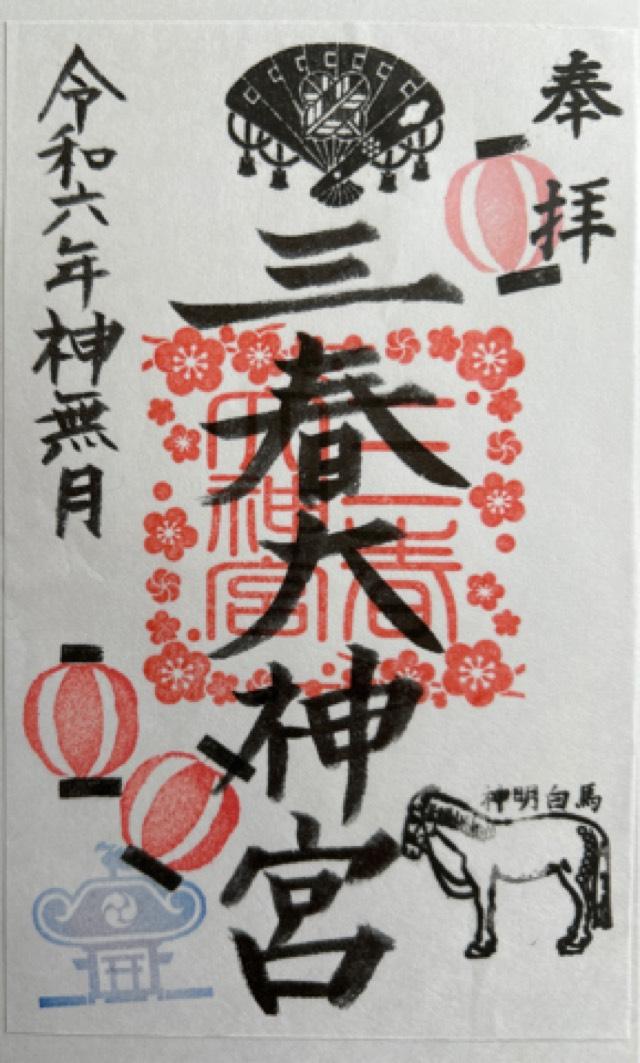 奉拝
三春大神宮
三春
大神宮
神明白馬
令和六年神無月